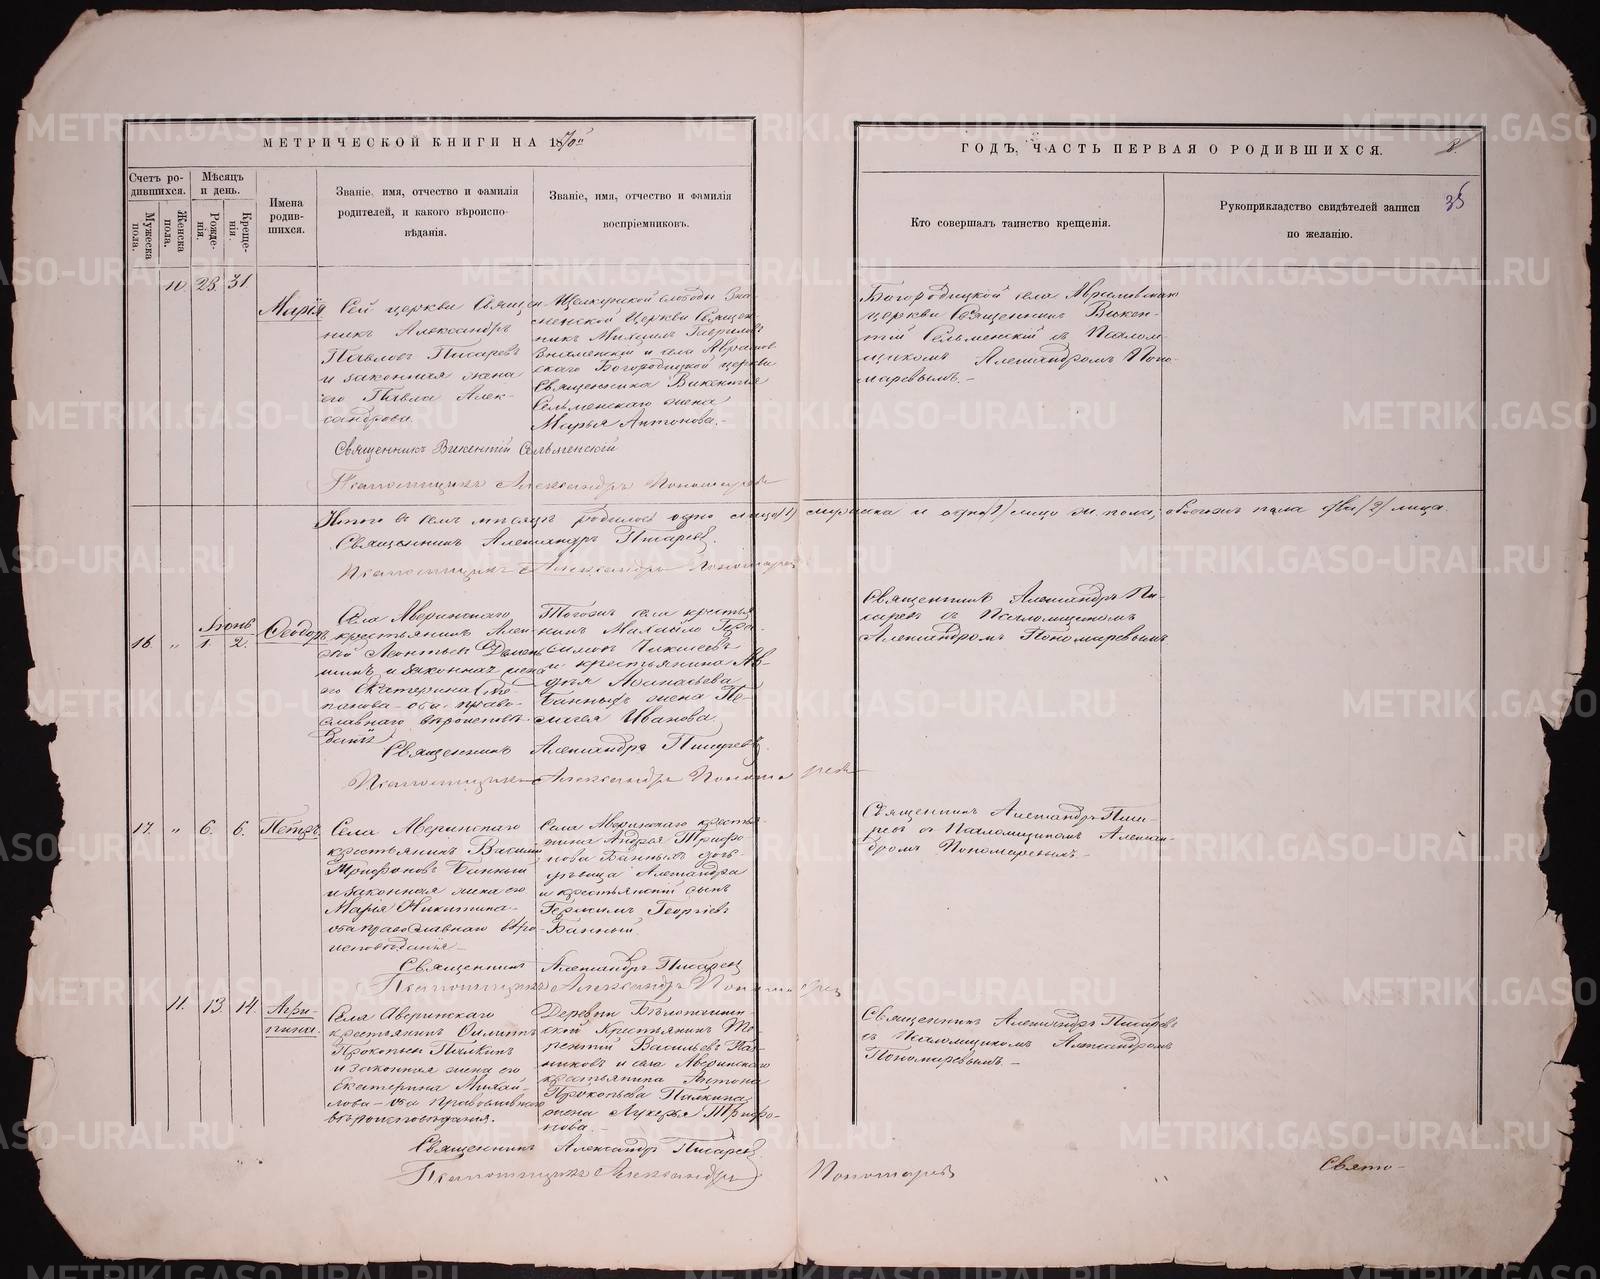 МЕТРИЧЕСКОЙ КНИГИ НА 1870й
ГОДЪ, ЧАСТЬ ПЕРВАЯ О РОДИВШИХСЯ.
35
Счетъ ро-
дившихся.
Мѣсяцъ
и день.
Мужеска
пола.
Женска
пола.
Рожде-
нія.
Креще-
нія.
Имена
родив-
шихся.
Званіе, имя, отчество и фамилія
родителей, и какого вѣроиспо-
вѣданія.
Званіе, имя, отчество и фамилія
воспріемниковъ.
Кто совершалъ таинство крещенія.
Рукоприкладство свидѣтелей записи
по желанію.
10. 28. 31
Марія
Сей церкви Священ
никъ Александръ
Павловъ Писаревъ
и законная жена
его Павла Алек-
сандрова.
Щелкунской слободы Зна-
менской Церкви Священ-
никъ Михаилъ Гавриловъ
Знаменскій и села Аврамов
скаго Богородицкой церкви
Священника Викентія
Сельменскаго жена
Марья Антонова.-
Богородицкой села Аврамовскаго
церкви Священникъ Викен-
тій Сельменскій съ Псалом-
щикомъ Александромъ Поно-
маревымъ.-
Священникъ Викентій Сельменскій
Псаломщикъ Александръ Пономаревъ
Итого въ семъ мѣсяцѣ родилось одно лицо /1/ мужска и одно /1/ лицо жен. пола; обоего пола два /2/ лица.
Священникъ Александръ Писаревъ.
Псаломщикъ Александръ Пономаревъ
Іюнь
16. " 1. 2.
Ѳеодоръ
Села Аверинскаго
крестьянинъ Алек-
сѣй Леонтьевъ
и законная жена
его Екатерина Сте-
панова - оба право-
славнаго вѣроиспов-
данія
Тогоже села крестья
нинъ Михайло Гера-
симовъ
и крестьянина Ав-
Аѳанасьева
Банныхъ жена Пе-
лагея Иванова
Священникъ Александръ Пи-
саревъ съ Псаломщикомъ
Александромъ Пономаревымъ
Священникъ Александръ Писаревъ
Псаломщикъ Александръ Пономаревъ
17. " 6. 6.
Петръ
Села Аверинскаго
крестьянинъ Василій
Трифоновъ Банный
и законная жена его
Марія Никитина -
оба православнаго вѣро-
исповѣданія
Села Аверинскаго кресть-
янина Андрея Трифо-
нова Банныхъ дочь
дѣвица Александра
и крестьянскій сынъ
Герасимъ Георгіевъ
Банный
Священникъ Александръ Писа-
ревъ съ Псаломщикомъ Алексан-
дромъ Пономаревымъ.-
Священникъ Александръ Писаревъ
Псаломщикъ Александръ Пономаревъ
11. 13. 14.
Агри-
пина.
Села Аверинскаго
крестьянинъ Филиппъ
Прокопьевъ Палкинъ
и законная жена его
Екатерина Михай-
лова - оба православнаго
вѣроисповѣданія.
Деревни
ской Крестьянинъ Те-
рентій Васильевъ
и села Аверинскаго
крестьянина Антона
Прокопьева Палкина
жена Лукерья Трифо-
нова.-
Священникъ Александръ Писаревъ
съ Псаломщикомъ Александромъ
Пономаревымъ.-
Священникъ Александръ Писаревъ
Псаломщикъ Александръ Пономаревъ
Свято-
METRIKI.GASO-URAL.RU